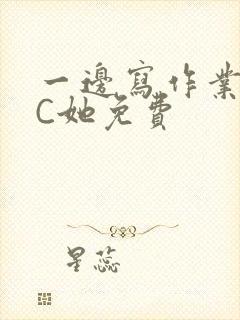 一邊寫作業
C她免費
星蕊